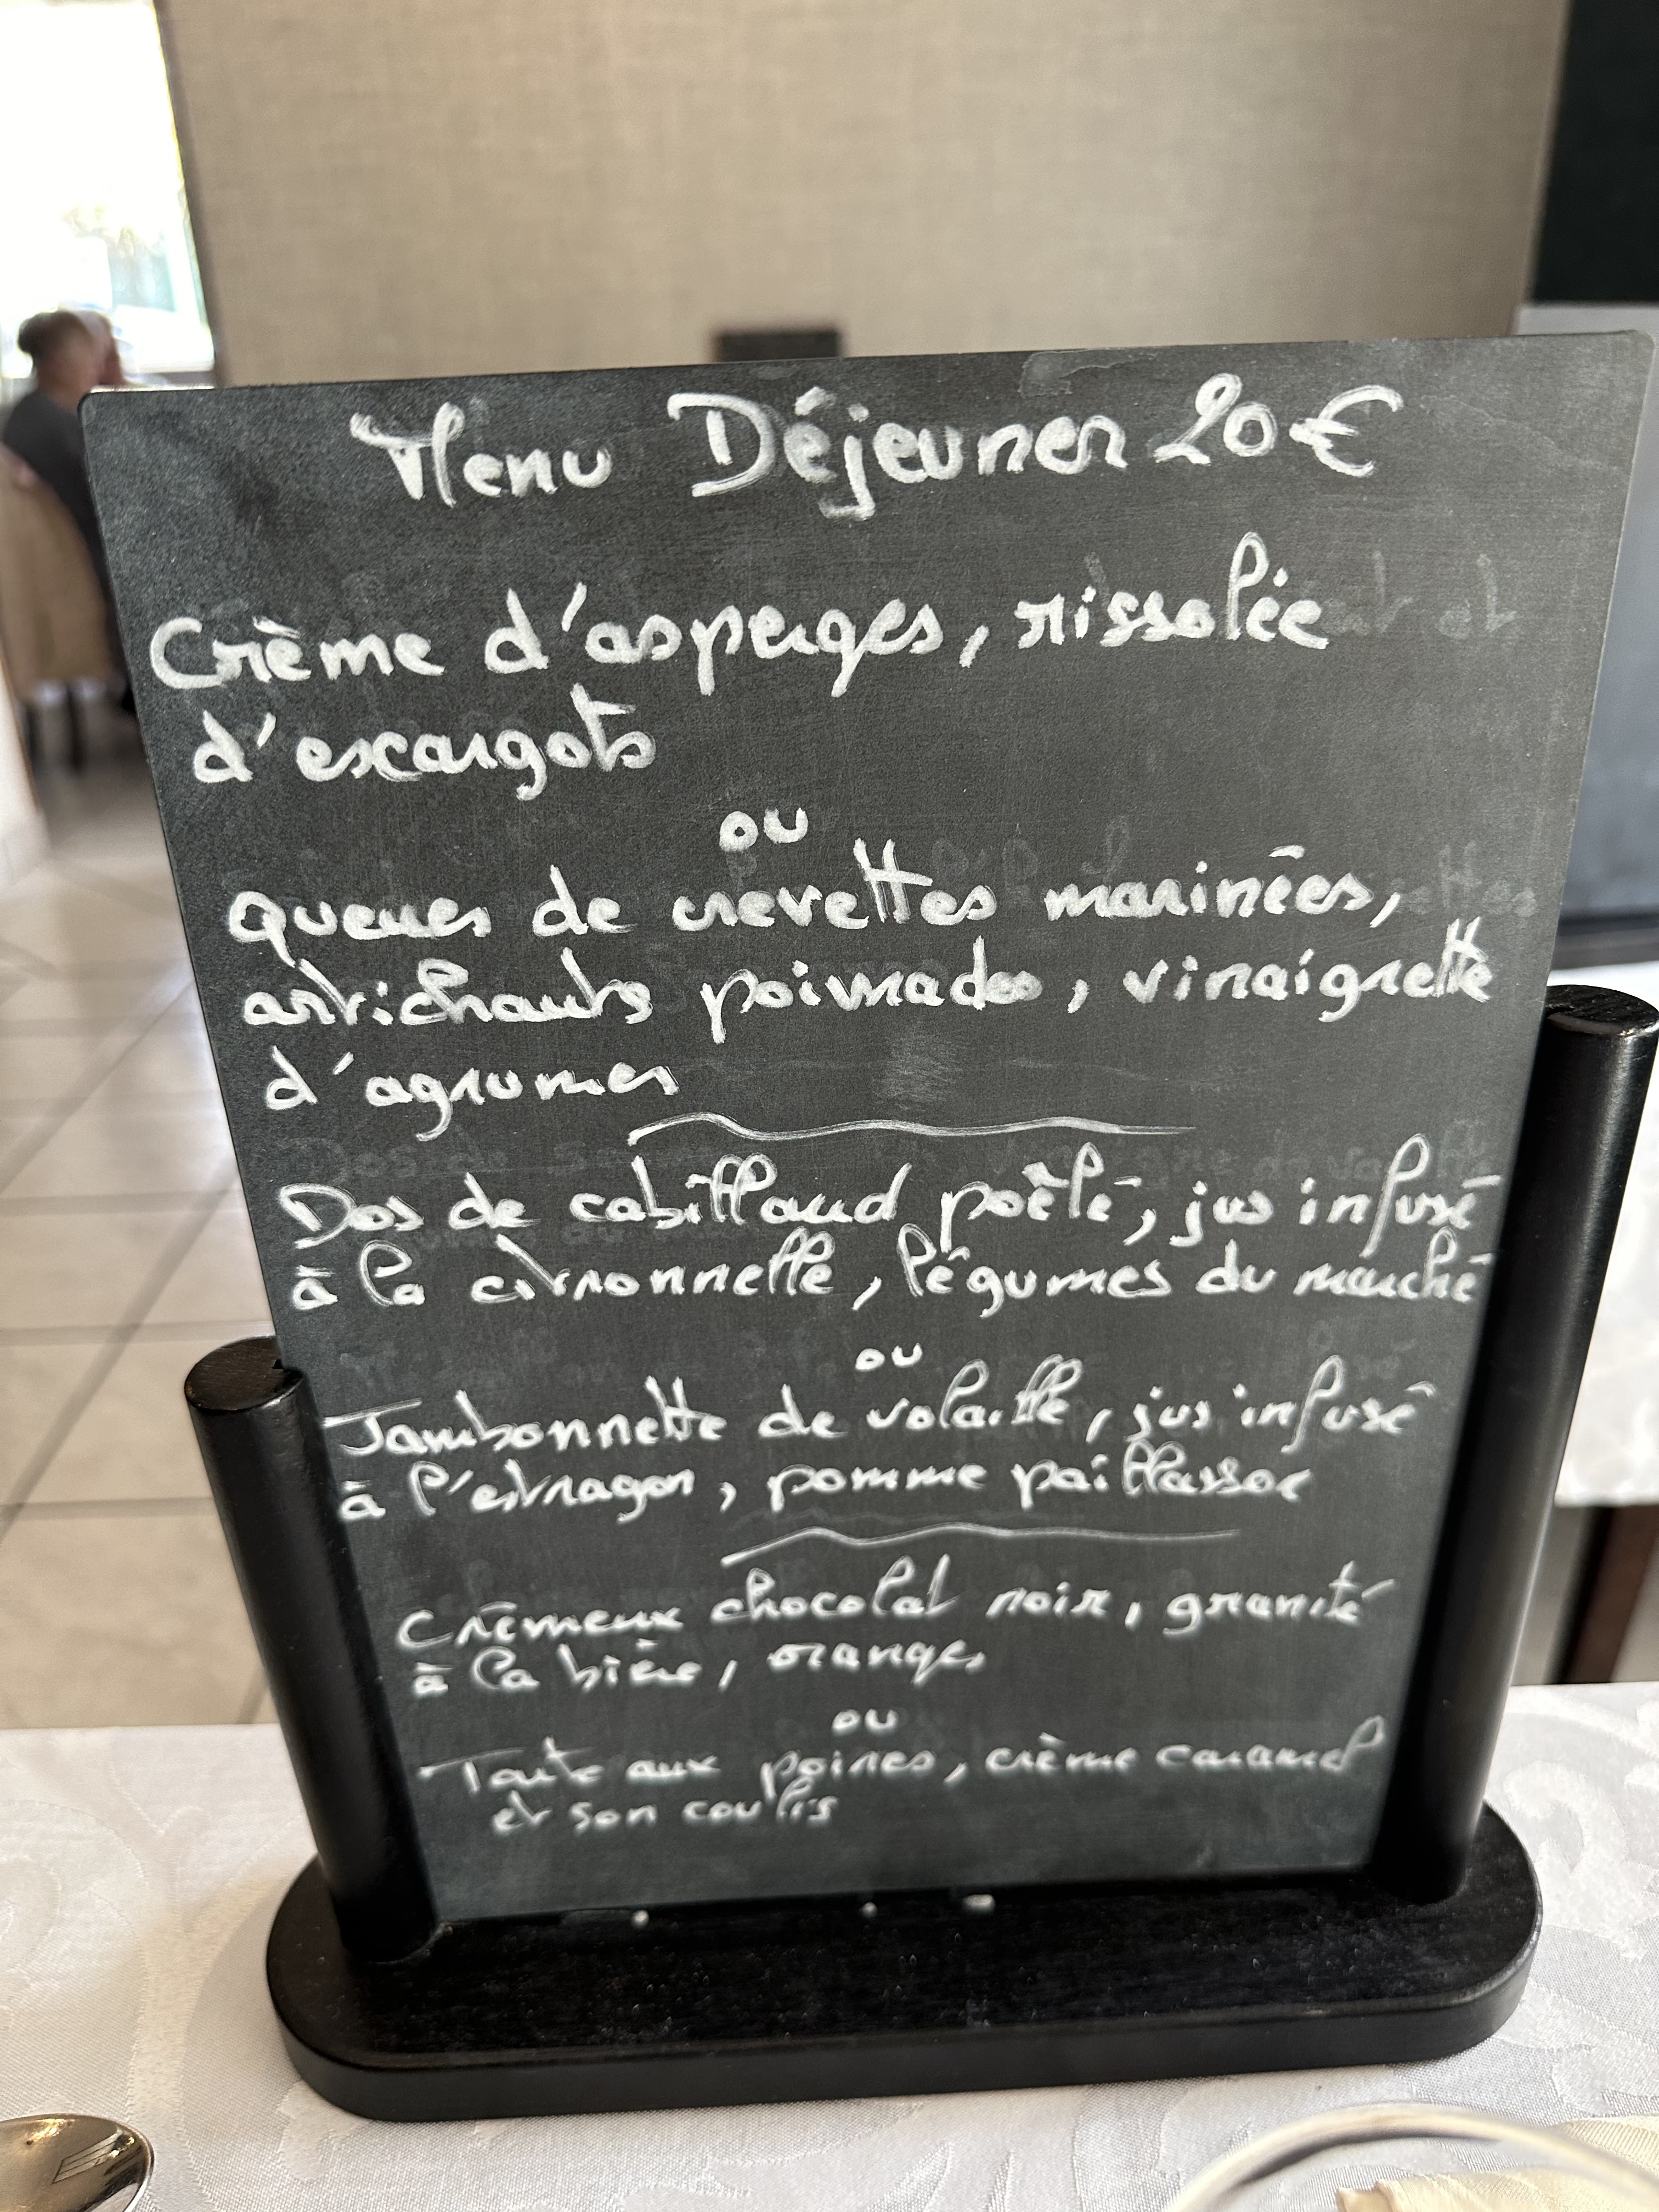 Menu Déjeuner 20€
Crème d'asperges, rissolée
d'escargots
ou
queues de crevettes marinées,
artichauts poivrades, vinaigrette
d'agrumes
Dos de cabillaud poêlé, jus infusé
à la citronnelle, légumes du marché
ou
Jambonnette de volaille, jus infusé
à l'estragon, pomme paillasson
Crémeux chocolat noir, granité
à la bière, oranges
ou
Tarte aux poires, crème caramel
et son coulis